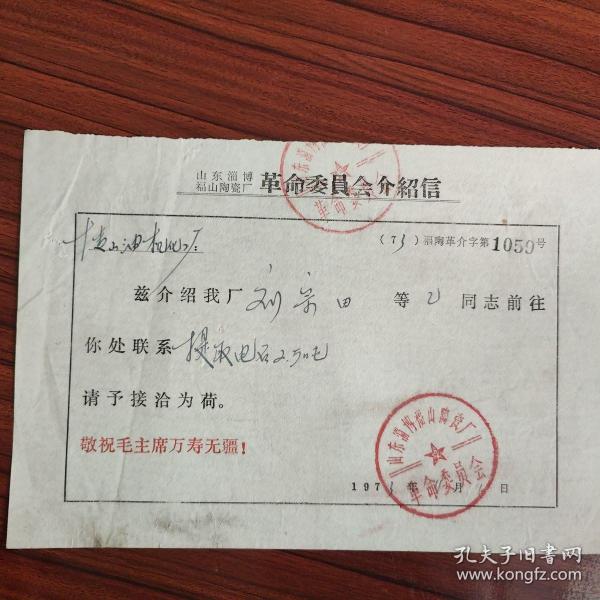 山东淄博
福山陶瓷厂 革命委員会介紹信
山 厂:
(73)福陶革介字第1059号
兹介绍我厂 刘宗田 等 2 同志前往
你处联系 提取电石2.5吨
请予接洽为荷。
敬祝毛主席万寿无疆!
山东淄博福山陶瓷厂
革命委员会
197 年 月 日
孔夫子旧书网
www.kongfz.com